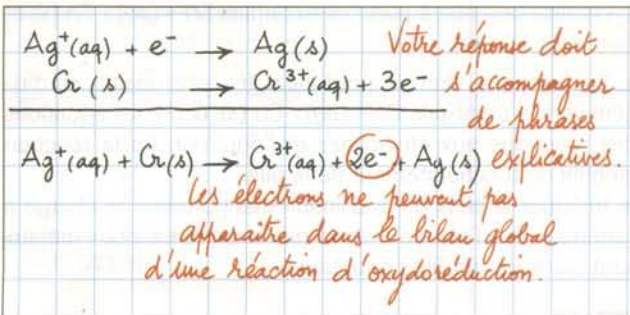 Ag⁺(aq) + e⁻ → Ag(s)
Cr(s) → Cr³⁺(aq) + 3e⁻
Ag⁺(aq) + Cr(s) → Cr³⁺(aq) + 2e⁻ + Ag(s)
Votre réponse doit
s'accompagner
de phrases
explicatives.
Les électrons ne peuvent pas
apparaitre dans le bilan global
d'une réaction d'oxydoréduction.